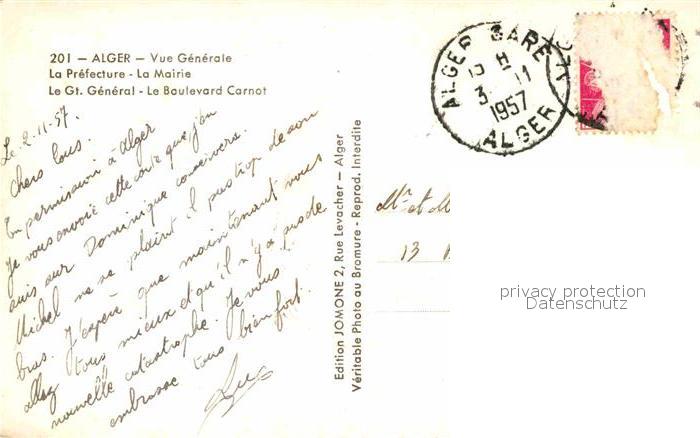 201 — ALGER — Vue Générale
La Préfecture - La Mairie
Le Gt. Général - Le Boulevard Carnot
Le 2.11.57.
Chers tous.
En permission à Alger
Je vous envoie cette carte que j'en
suis sur Dominique conservera.
Michel ne se plaint il pas trop de son
bras. J'espère que maintenant vous
allez tous mieux et qu'il n'y a pas de
nouvelle catastrophe. Je vous
embrasse tous bien fort.
Edition JOMONE 2, Rue Levacher — Alger
Véritable Photo au Bromure - Reprod. Interdite
ALGER GARE
15 H
3 11
1957
ALGER
Mr et M
13
privacy protection
Datenschutz